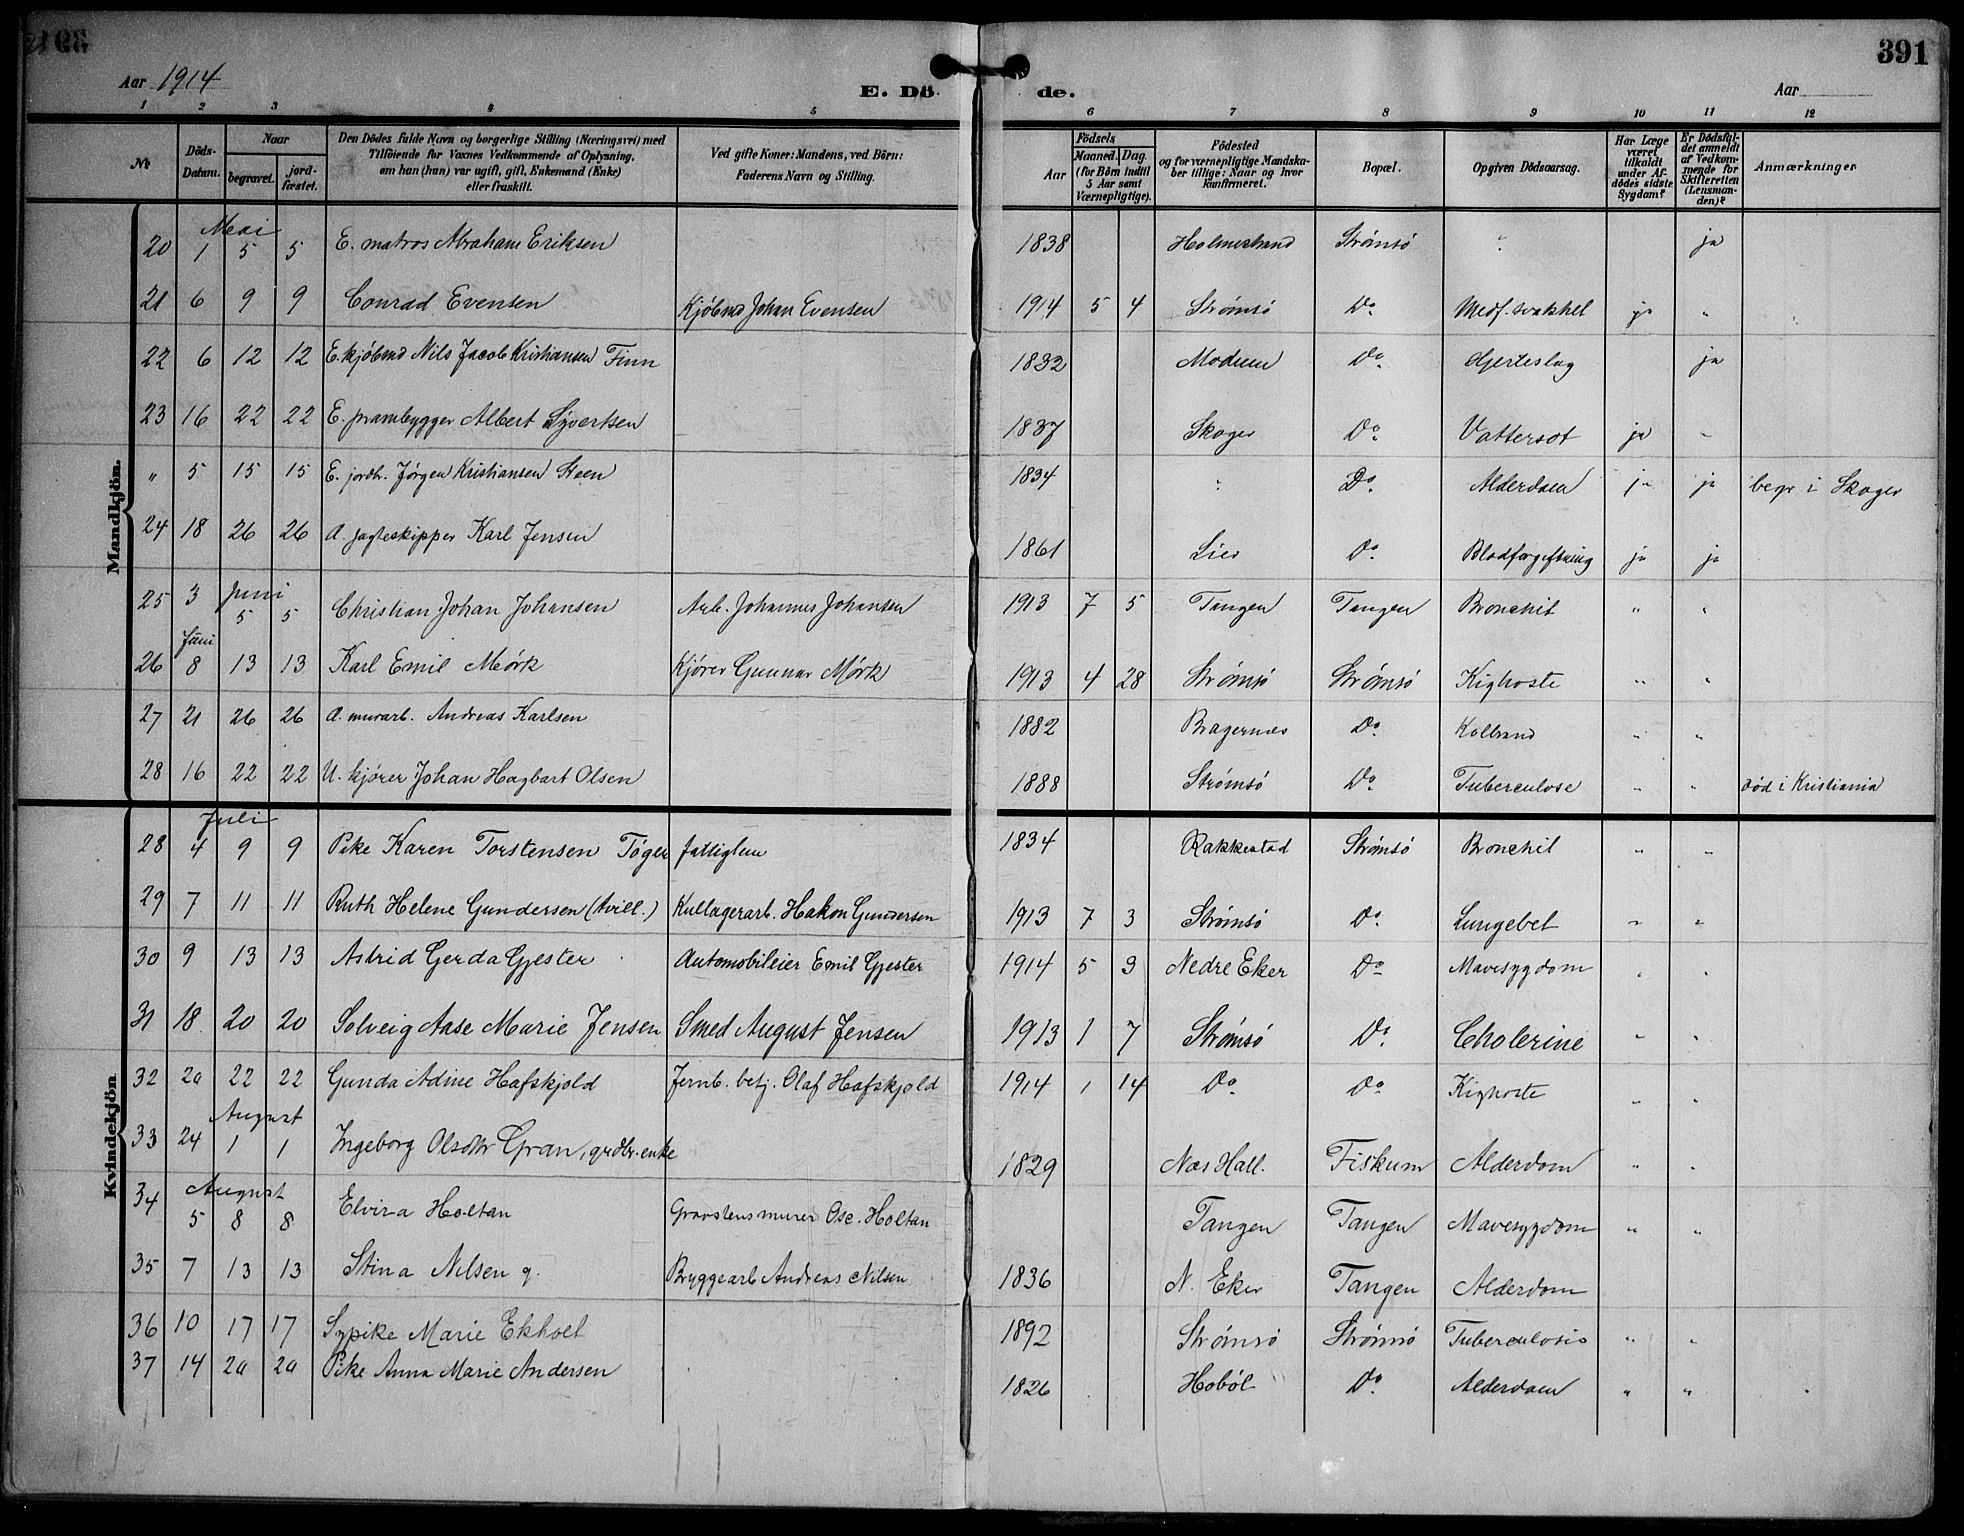 391
Aar 1914
E. Dö de.
Aar
1 2 3 4 5 6 7 8 9 10 11 12
No
Döds-Datum.
Naar
begravet.
jord-fæstet.
Den Dödes fulde Navn og borgerlige Stilling (Næringsvei) med
Tilföiende for Voxnes Vedkommende af Oplysning,
om han (hun) var ugift, gift, Enkemand (Enke)
eller fraskilt.
Ved gifte Koner: Mandens, ved Börn:
Faderens Navn og Stilling.
Födsels
Aar
Maaned. Dag.
(for Börn indtil
5 Aar samt
Værnepligtige).
Födested
og for værnepligtige Mandska-
ber tillige: Naar og hvor
konfirmeret.
Bopæl.
Opgiven Dödsaarsag.
Har Læge
været
tilkaldt
under Af-
dödes sidste
Sygdom?
Er Dödsfal-
det anmeldt
af Vedkom-
mende for
Skifteretten
(Lensman-
den)?
Anmærkninger
Mandkjön.
Mai
20 1 5 5 E. matros Abraham Eriksen 1838 Holmestrand Strømsø " ja
21 6 9 9 Conrad Evensen Kjöbmd Johan Evensen 1914 5 4 Strømsø Do. Medf. svakhet ja "
22 6 12 12 E. kjøbmd Nils Jacob Kristiansen Finn 1832 Modum Do. Hjerteslag ja
23 16 22 22 E. prambygger Albert Syvertsen 1837 Skoger Do. Vattersot ja "
" 5 15 15 E. jordbr. Jørgen Kristiansen Steen 1834 " Do. Alderdom ja ja begr i Skoger
24 18 26 26 A. jagteskipper Karl Jensen 1861 Lier Do. Blodforgiftning ja ja
Juni
25 3 5 5 Christian Johan Johansen Arb. Johannes Johansen 1913 7 5 Tangen Tangen Bronchit " "
Juni
26 8 13 13 Karl Emil Mørk Kjører Gunnar Mørk 1913 4 28 Strømsø Strømsø Kighoste " "
27 21 26 26 A. murarb. Andreas Karlsen 1882 Bragernæs Do. Kolbrand " "
28 16 22 22 U. kjører Johan Hagbart Olsen 1888 Strømsø Do. Tuberculose " " død i Kristiania
Kvindekjön
Juli
28 4 9 9 Pike Karen Torstensen Töger fattiglem 1834 Rakkestad Strømsø Bronchit " "
29 7 11 11 Ruth Helene Gundersen (tvill.) Kullagerarb. Hakon Gundersen 1913 7 3 Strømsø Do. Lungebet " "
30 9 13 13 Astrid Gerda Gjester Automobileier Emil Gjester 1914 5 3 Nedre Eker Do. Mavesygdom " "
31 18 20 20 Solveig Aase Marie Jensen Smed August Jensen 1913 1 7 Strømsø Do. Cholerine " "
32 20 22 22 Gunda Adine Hafskjold Jernb. betj. Olaf Hafskjold 1914 1 14 Do Do Kighoste " "
August
33 24 1 1 Ingeborg Olsdtr Gran, grdbr. enke 1829 Næs Hall. Fiskum Alderdom " "
August
34 5 8 8 Elvira Holtan Graastensmurer Osc. Holtan Tangen Tangen Mavesygdom " "
35 7 13 13 Stina Nilsen g. Bryggearb Andreas Nilsen 1836 N. Eker Tangen Alderdom
36 10 17 17 Sypike Marie Ekholt 1892 Strømsø Strømsø Tuberculosis " "
37 14 20 20 Pike Anna Marie Andersen 1826 Hobøl Do. Alderdom " "